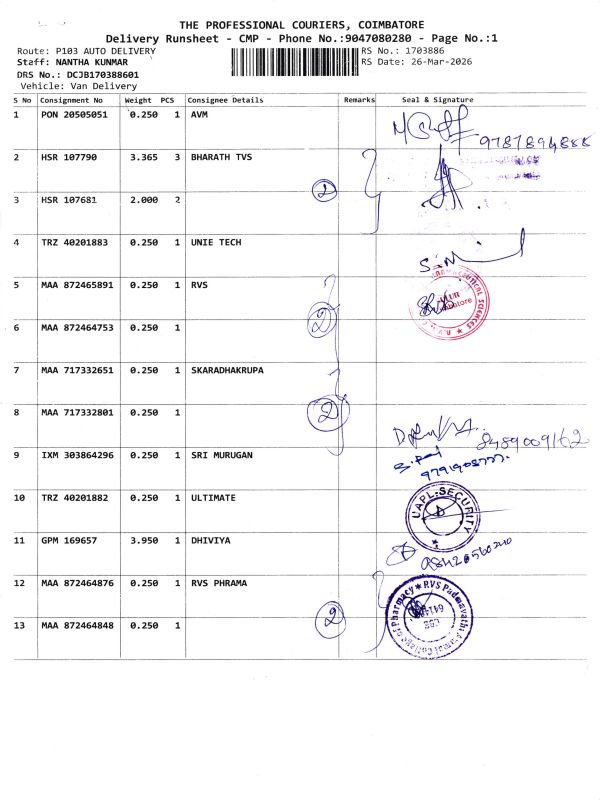 THE PROFESSIONAL COURIERS, COIMBATORE
Delivery Runsheet - CMP - Phone No.:9047080280 - Page No.:1
Route: P103 AUTO DELIVERY
RS No.: 1703886
Staff: NANTHA KUNMAR
RS Date: 26-Mar-2026
DRS No.: DCJB170388601
Vehicle: Van Delivery
S No Consignment No Weight PCS Consignee Details Remarks Seal & Signature
1 PON 20505051 0.250 1 AVM
9787894888
2 HSR 107790 3.365 3 BHARATH TVS
2
3 HSR 107681 2.000 2
4 TRZ 40201883 0.250 1 UNIE TECH
5 MAA 872465891 0.250 1 RVS
2
6 MAA 872464753 0.250 1
7 MAA 717332651 0.250 1 SKARADHAKRUPA
2
8 MAA 717332801 0.250 1
8489009162
9 IXM 303864296 0.250 1 SRI MURUGAN
10 TRZ 40201882 0.250 1 ULTIMATE
UAPL-SECURITY
11 GPM 169657 3.950 1 DHIVIYA
12 MAA 872464876 0.250 1 RVS PHRAMA
2
13 MAA 872464848 0.250 1